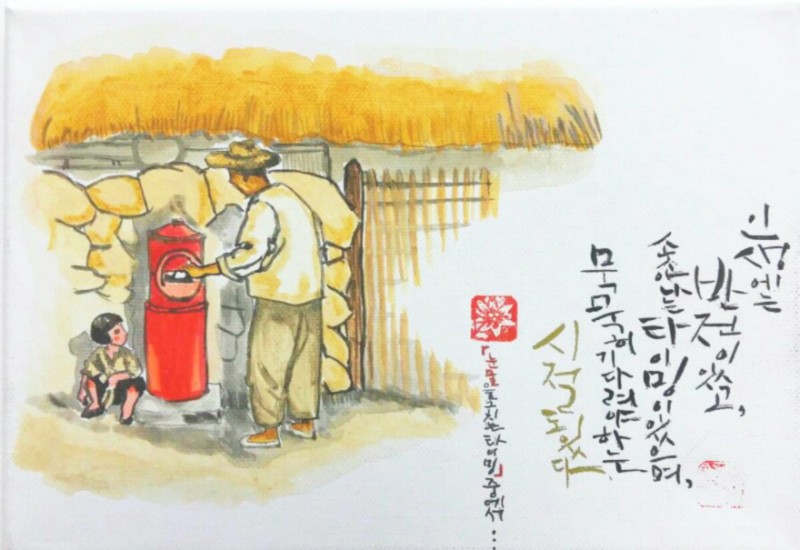 인생에는
반전이 있고,
타이밍이 있으며,
묵묵히 기다려야 하는
시절도 있다
『눈물을 그치는 타이밍』 중에서...